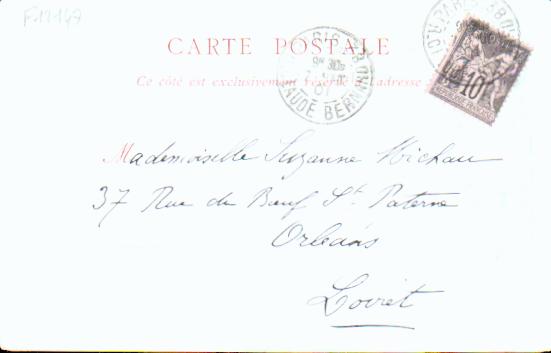 F12149
CARTE POSTALE
Ce côté est exclusivement réservé à l'adresse
PARIS
9e 30s
01
CLAUDE BERNARD
10
RÉPUBLIQUE FRANÇAISE
Mademoiselle Suzanne Michau
37 Rue du Bœuf St. Paterne
Orléans
Loiret